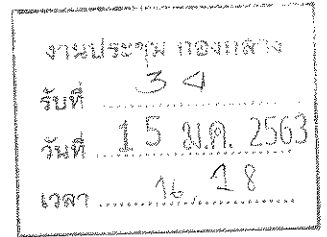 งานประชุม กองกลาง
รับที่ 34
วันที่ 15 ม.ค. 2563
เวลา 16.18